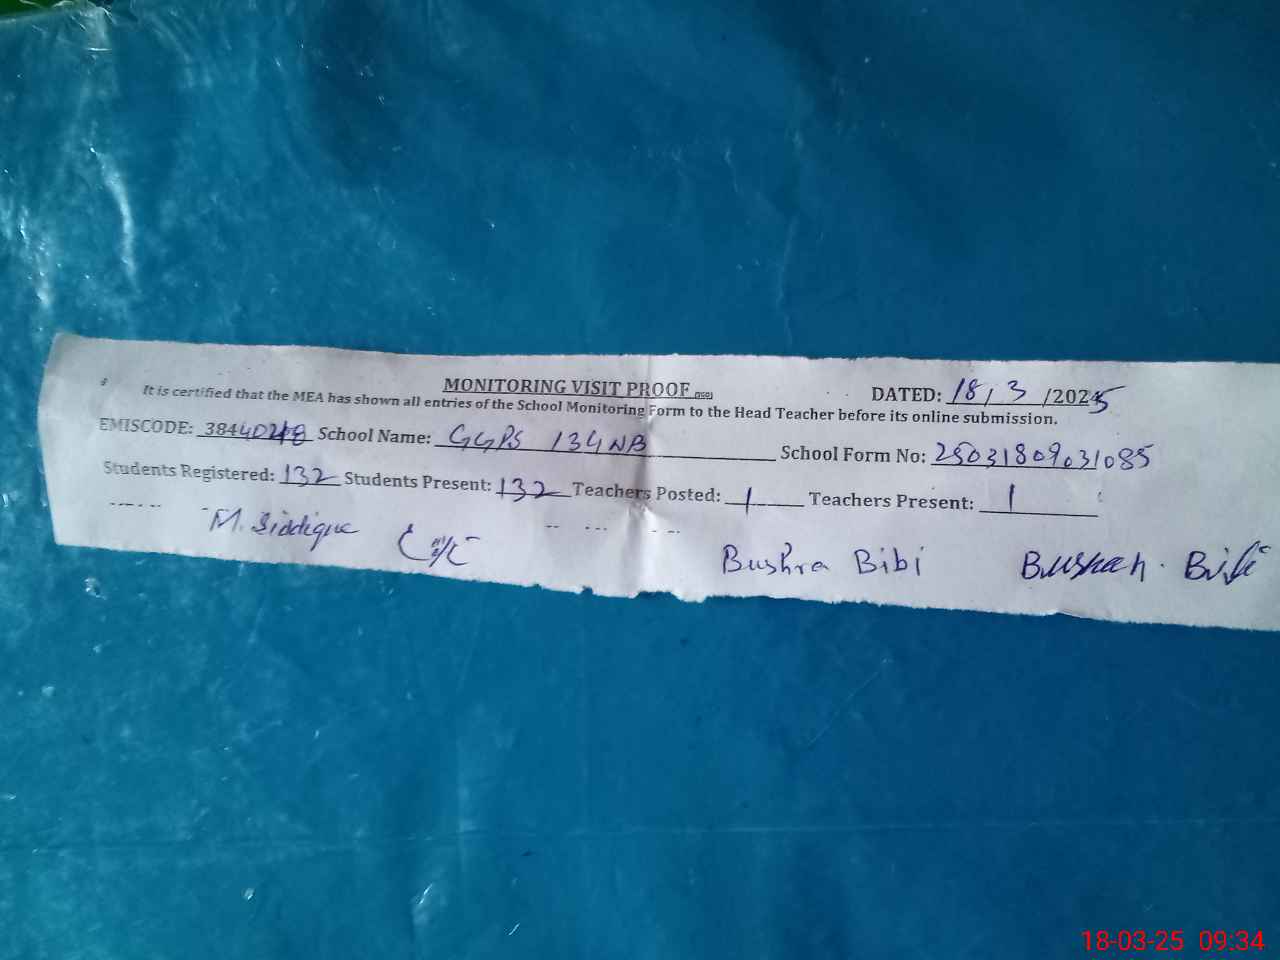 MONITORING VISIT PROOF
DATED: 18/3/2025
It is certified that the MEA has shown all entries of the School Monitoring Form to the Head Teacher before its online submission.
EMISCODE: School Name: GGPS 134NB School Form No: 25031809031085
Students Registered: 132 Students Present: 132 Teachers Posted: 1 Teachers Present: 1
M. Siddique Bushra Bibi Bushrah. Bibi
18-03-25 09:34